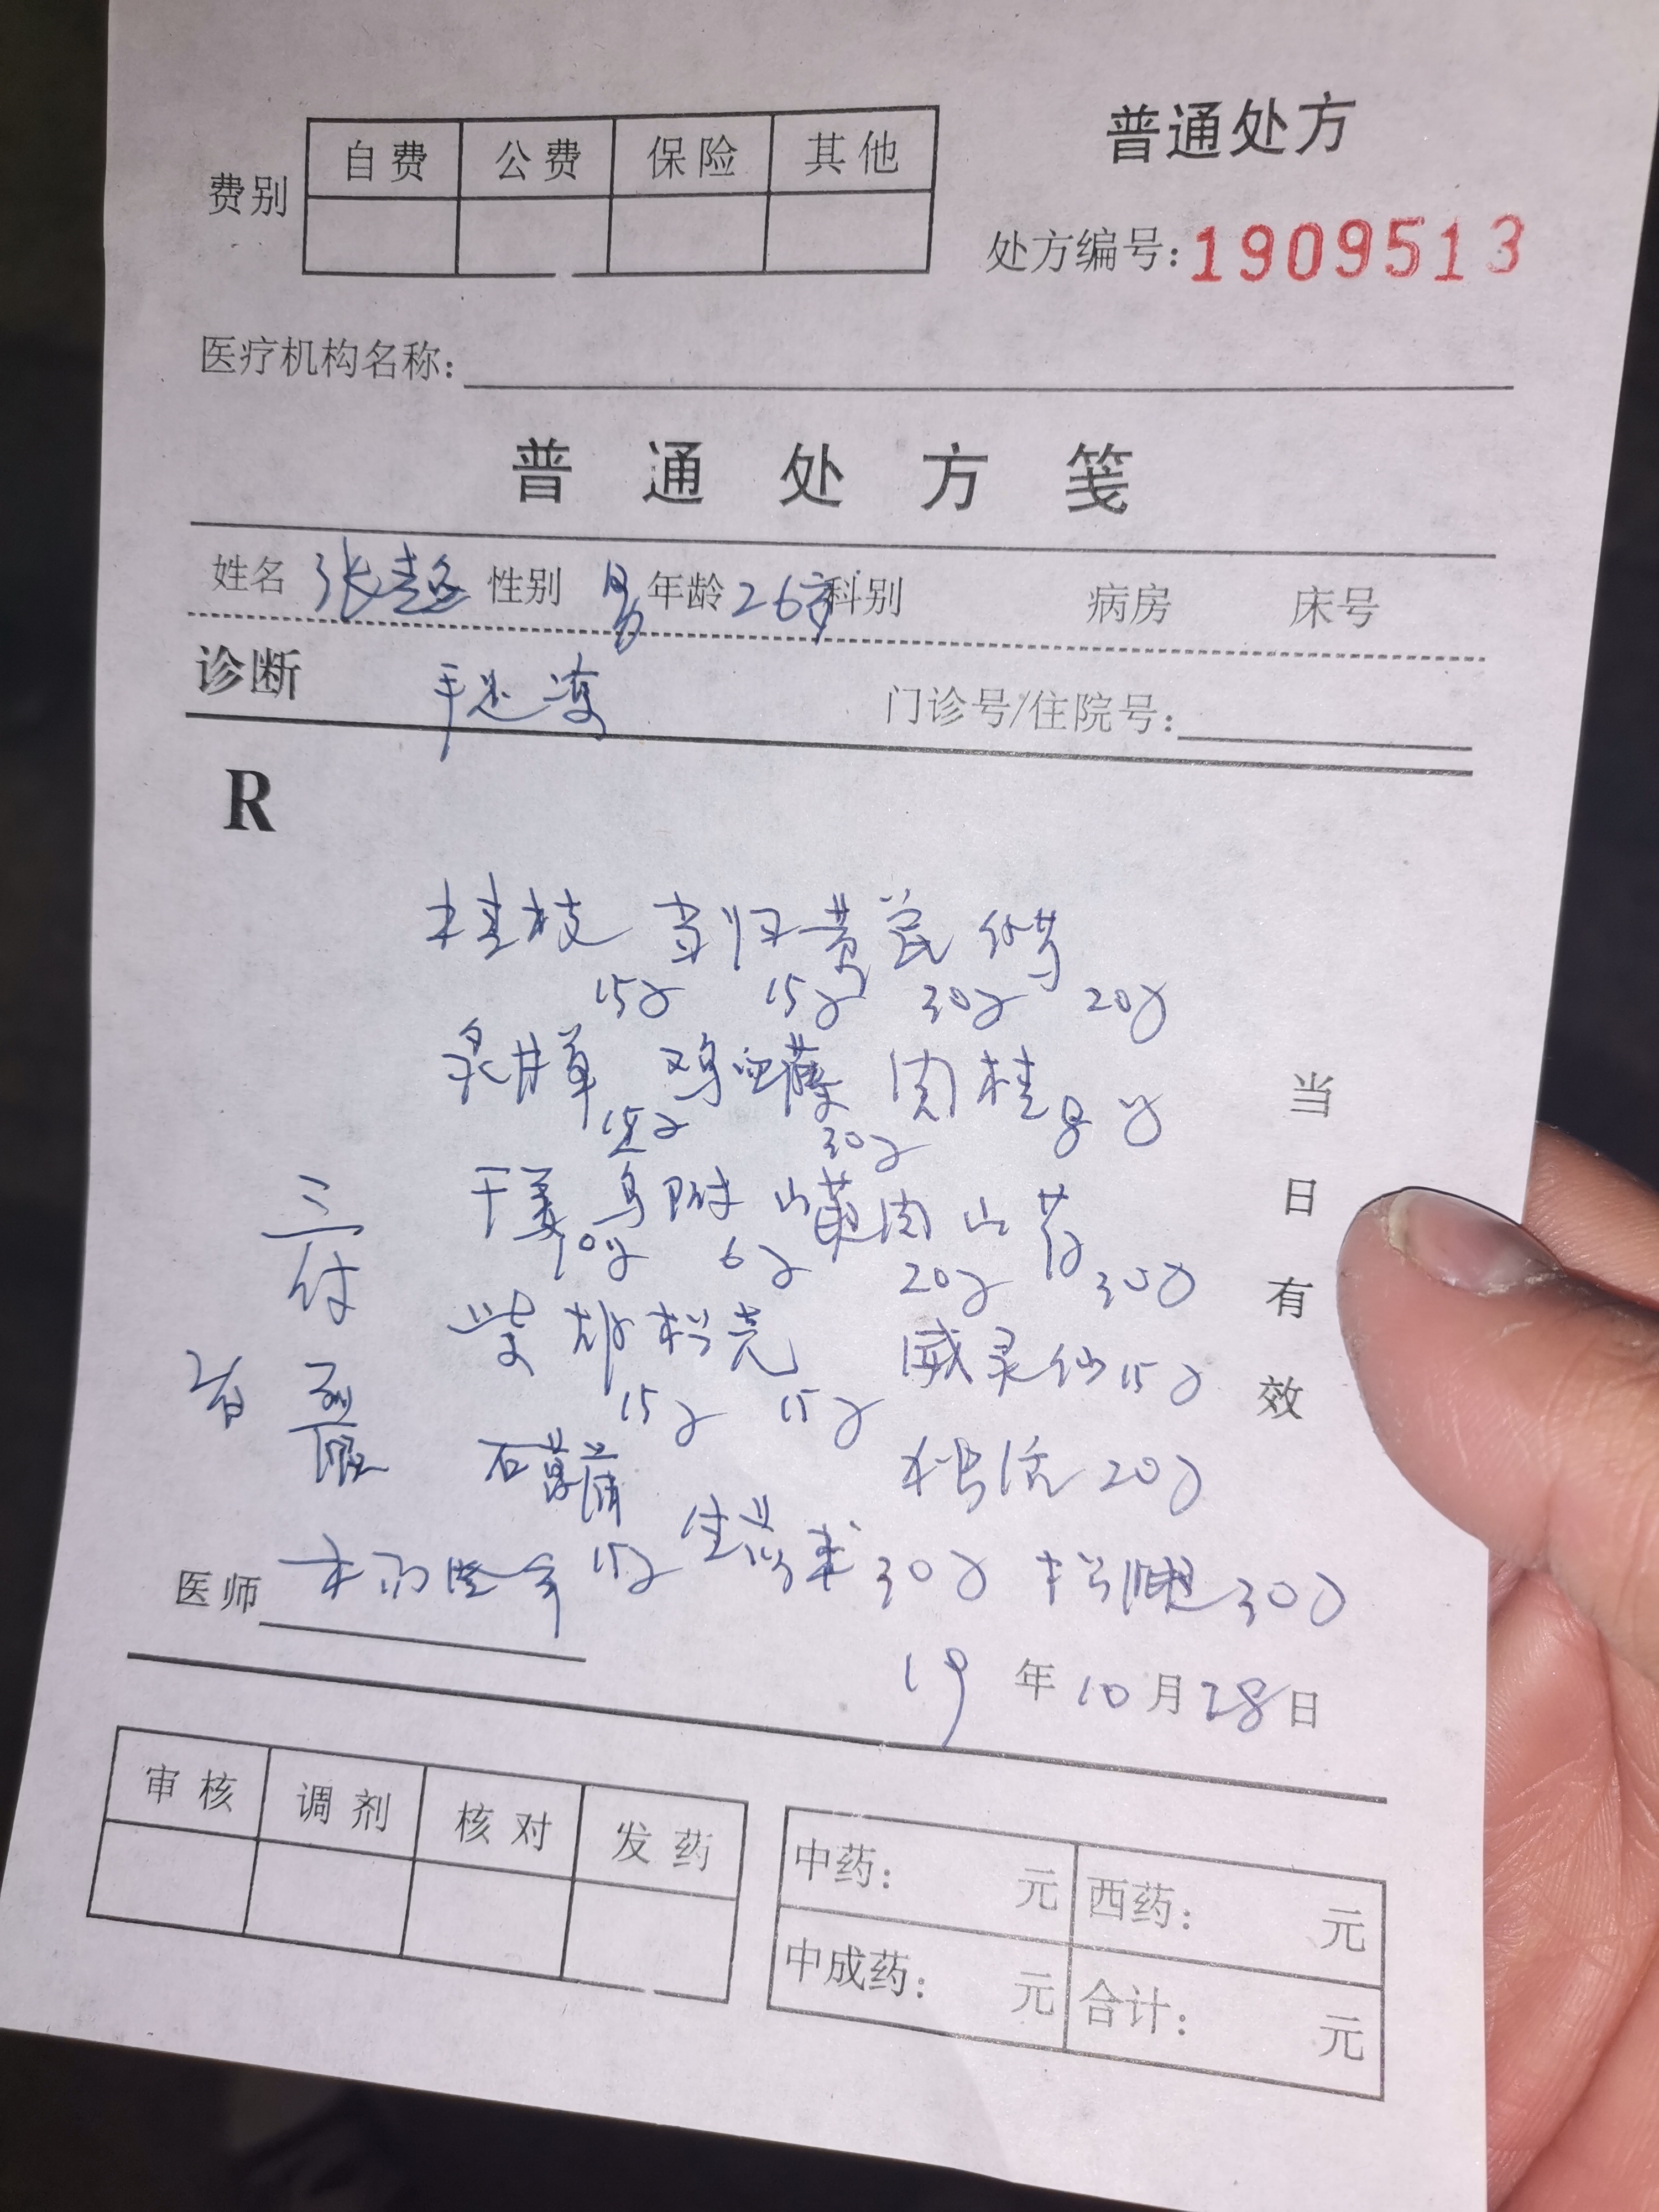 普通处方
费别 自费 公费 保险 其他
处方编号:1909513
医疗机构名称:
普通处方笺
姓名 张 性别 男 年龄 26岁 科别 病房 床号
诊断 手足凉 门诊号/住院号:
R
桂枝 15g 当归 15g 黄芪 30g 20g
炙甘草 15g 鸡血藤 30g 肉桂 8g
干姜 10g 乌附 6g 山萸肉 20g 山药 30g
柴胡 15g 枳壳 15g 威灵仙 15g
石菖蒲 独活 20g
15g 30g 30g
三付
当日有效
医师
19年10月28日
审核 调剂 核对 发药
中药: 元 西药: 元
中成药: 元 合计: 元